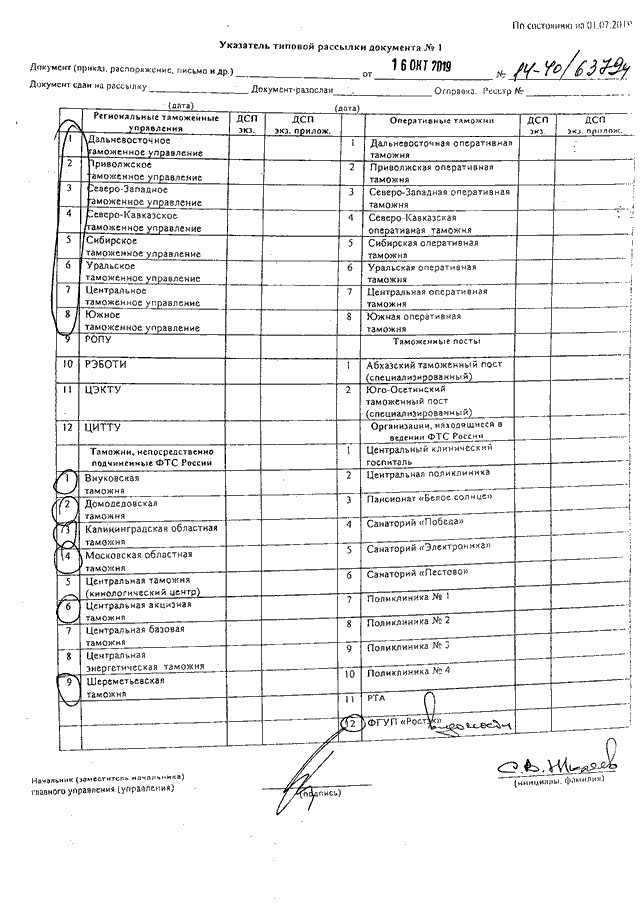 По состоянию на 01.07.2019
Указатель типовой рассылки документа № 1
Документ (приказ, распоряжение, письмо и др.) от 16 ОКТ 2019 № 14-40/63794
Документ сдан на рассылку Документ разослан Отправка. Реестр №
(дата) (дата)
Региональные таможенные управления ДСП экз. ДСП экз. прилож. Оперативные таможни ДСП экз. ДСП экз. прилож.
1 Дальневосточное таможенное управление 1 Дальневосточная оперативная таможня
2 Приволжское таможенное управление 2 Приволжская оперативная таможня
3 Северо-Западное таможенное управление 3 Северо-Западная оперативная таможня
4 Северо-Кавказское таможенное управление 4 Северо-Кавказская оперативная таможня
5 Сибирское таможенное управление 5 Сибирская оперативная таможня
6 Уральское таможенное управление 6 Уральская оперативная таможня
7 Центральное таможенное управление 7 Центральная оперативная таможня
8 Южное таможенное управление 8 Южная оперативная таможня
9 РОПУ Таможенные посты
10 РЭБОТИ 1 Абхазский таможенный пост (специализированный)
11 ЦЭКТУ 2 Юго-Осетинский таможенный пост (специализированный)
12 ЦИТТУ Организации, находящиеся в ведении ФТС России
Таможни, непосредственно подчиненные ФТС России 1 Центральный клинический госпиталь
1 Внуковская таможня 2 Центральная поликлиника
2 Домодедовская таможня 3 Пансионат «Белое солнце»
3 Калининградская областная таможня 4 Санаторий «Победа»
4 Московская областная таможня 5 Санаторий «Электроника»
5 Центральная таможня (кинологический центр) 6 Санаторий «Пестово»
6 Центральная акцизная таможня 7 Поликлиника № 1
7 Центральная базовая таможня 8 Поликлиника № 2
8 Центральная энергетическая таможня 9 Поликлиника № 3
9 Шереметьевская таможня 10 Поликлиника № 4
11 РТА
12 ФГУП «Ростэк»
Начальник (заместитель начальника)
главного управления (управления)
(подпись)
(инициалы, фамилия)